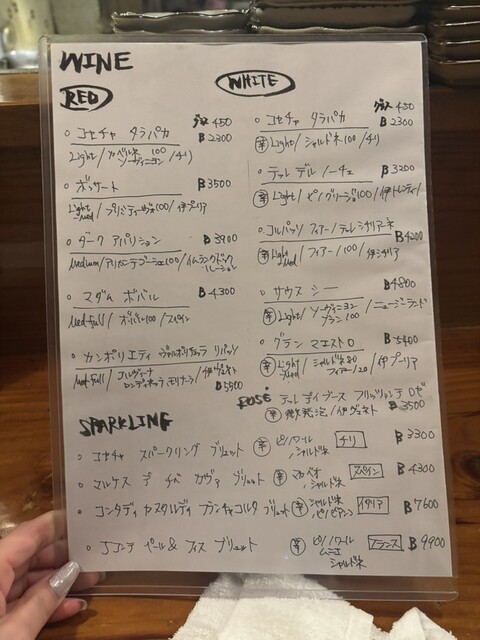 WINE
RED
グラス 450
・コセチャ タラパカ B2300
Light/カベルネ 100/チリ
ソーヴィニヨン
・ボッサート B3500
Light-Med/プリミティーヴォ100/伊プーリア
・ダーク アパリション B3900
Medium/
・マダム ボバル B4300
Med-full/ボバル100/スペイン
・カンポリエティ リパッソ
Med-full/コルヴィーナ
ロンディネッラ モリナーラ/伊ヴェネト
B5500
WHITE
グラス 450
・コセチャ タラパカ B2300
辛 Light/シャルドネ100/チリ
・テッレ デル ノーチェ B3200
辛 Light/ピノグリージョ100/伊トレンティーノ
・コルパッソ フィアーノ テッレ シチリアーネ
B4200
辛 Light-Med/フィアーノ100/伊シチリア
・サウス シー B4800
辛 Light/ソーヴィニヨン
ブラン 100/ニュージーランド
・グラン マエストロ B5400
辛 Light-Med/シャルドネ80
フィアーノ20/伊プーリア
ROSÉ テッレ デイ ブース フリッツァンテ ロゼ
辛 微発泡/伊ヴェネト B3500
SPARKLING
・コセチャ スパークリング ブリュット 辛 ピノノワール
シャルドネ チリ B3300
・マルケス デ チベ カヴァ ブリュット 辛 マカベオ
シャルドネ スペイン B4300
・コンタディ カスタルディ フランチャコルタ ブリュット 辛 シャルドネ
ピノビアンコ イタリア B7600
・Jコンテ ペール&フィス ブリュット 辛 ピノノワール
ムニエ
シャルドネ フランス B9900